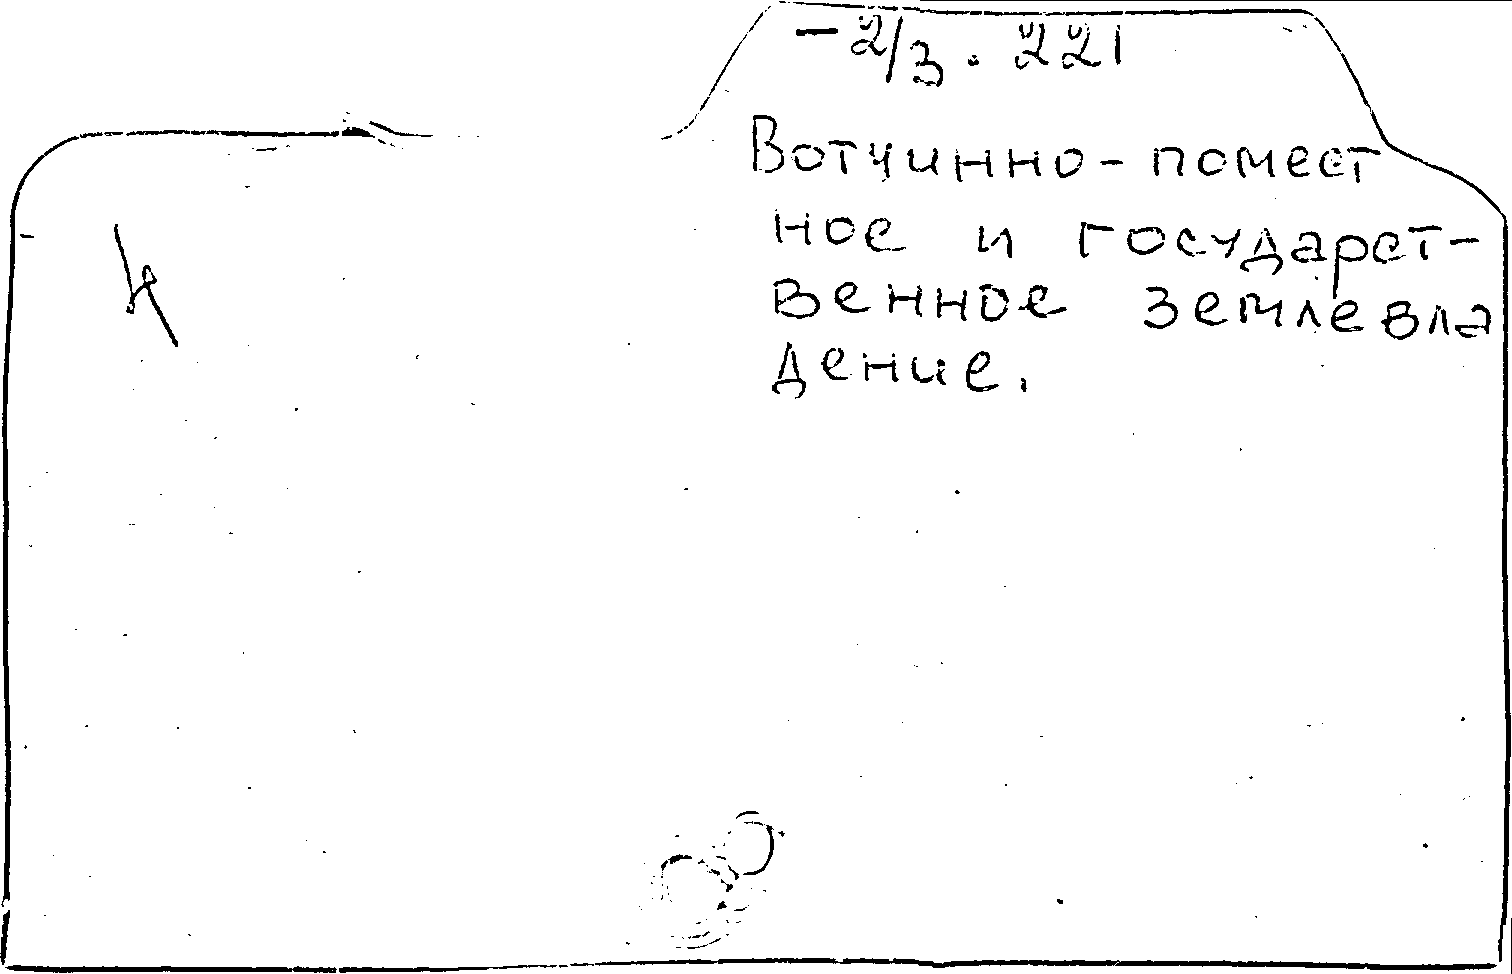 - 2/3 . 221
Вотчинно-помест
ное и государст-
венное землевла
дение.